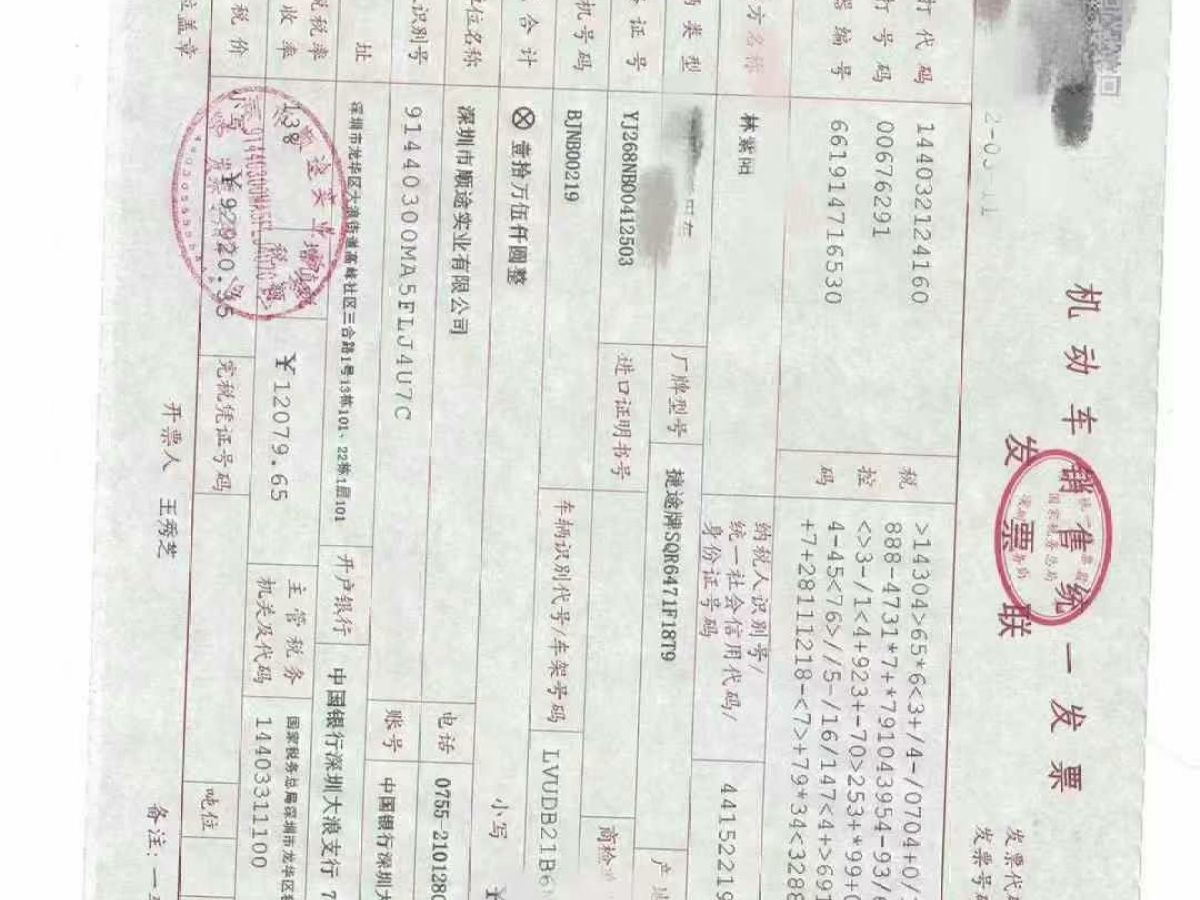 机动车销售统一发票
发票联
发票代码
发票号码
打代码
打号码
器编号
144032124160
00676291
661914716530
税控码
>14304>65*6<3+/4-/0704+0/
888-4731*7+*791043954-93/6
<>3-/1<4+923+-70>253+*99+0
4-45<76>//5-/16/147<4+>691
+7+28111218-<7>+79*34<3288
方名称
林紫阳
纳税人识别号/
统一社会信用代码/
身份证号码
44152219
类型
厂牌型号
捷途牌SQR6471F18T9
产地
证号
YJ268NB00412503
进口证明书号
商检
机号码
BJNB00219
车辆识别代号/车架号码
LVUDB21B6
合计
⊗壹拾万伍仟圆整
小写
¥
单位名称
深圳市顺途实业有限公司
电话
0755-2101280
识别号
91440300MA5FLJ4U7C
账号
中国银行深圳大
址
深圳市龙华区大浪街道高峰社区三合路1号13栋101、22栋1层101
开户银行
中国银行深圳大浪支行 7
税税率
收率
13%
增值税
税额
¥12079.65
主管税务
机关及代码
国家税务总局深圳市龙华区
14403311100
税价
小写
¥92920.35
完税凭证号码
吨位
位盖章
开票人 王秀芝
备注:一